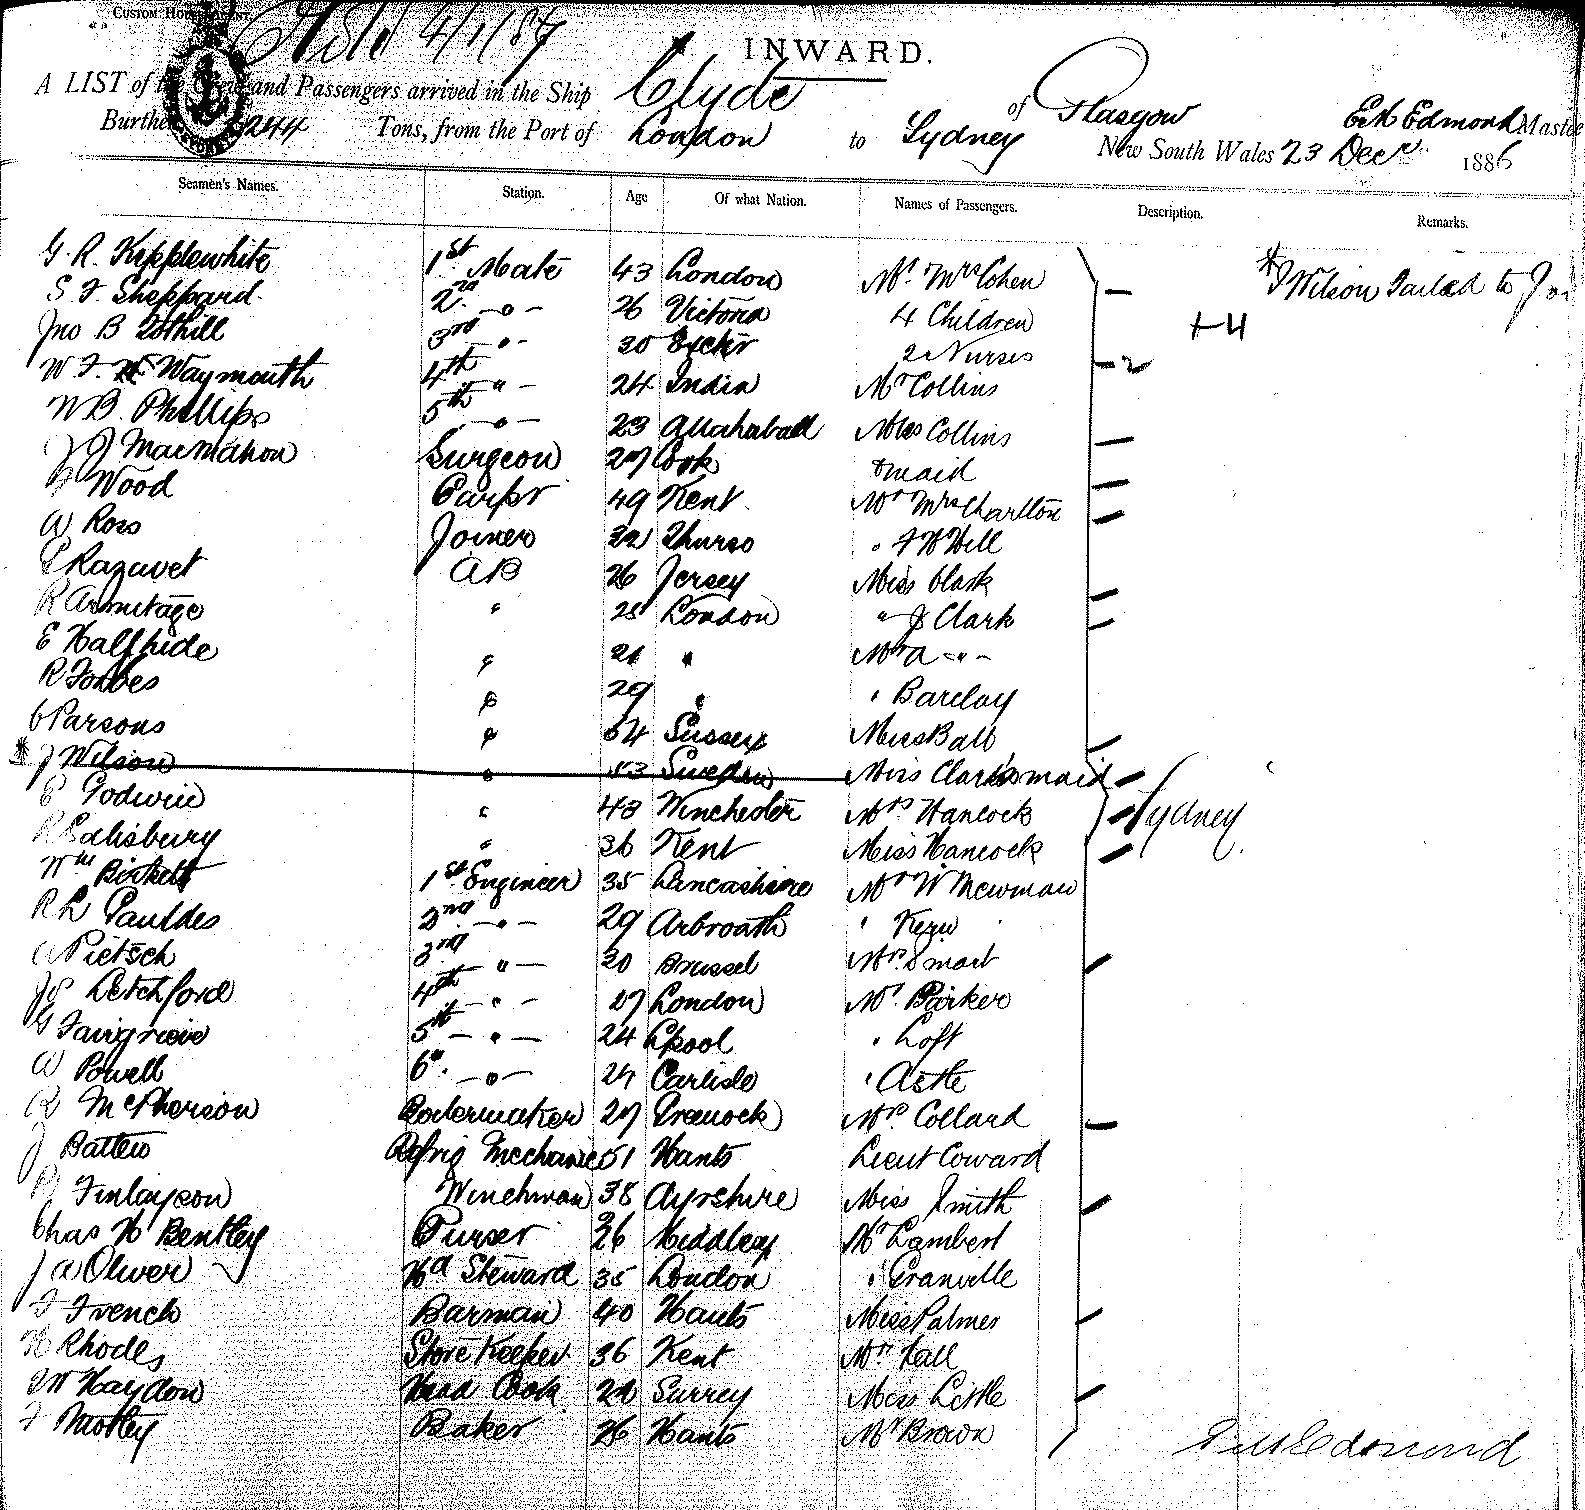 CUSTOM HOUSE
4/1/87
INWARD.
A LIST of the Crew and Passengers arrived in the Ship Clyde of Glasgow Edmond Master
Burthen 244 Tons, from the Port of London to Sydney New South Wales 23 Decr 1886
Seamen's Names. Station. Age Of what Nation. Names of Passengers. Description. Remarks.
G. R. Kipplewhite 1st Mate 43 London Mr Mrs Cohen — * J Wilson failed to Join
S F Sheppard. 2nd -"- 26 Victoria 4 Children +4
Jno B Tothill 3rd " - 30 Exeter 2 Nurses — 2
W. F. Waymouth 4th " - 24 India Mr Collins
W B. Phillips 5th -"- 23 Allahabad Miss Collins —
J MacMahon Surgeon 27 Cork & maid —
Wood Carpr 49 Kent Mr Mrs Charlton —
A Ross Joiner 32 Thurso " F W Hill
Razavet AB 26 Jersey Miss Clark —
R Armitage " 25 London " J Clark —
E Halfhide " 21 " Mr A -"-
R Forbes " 29 " " Barclay
C Parsons " 54 Sussex Miss Ball —
* J Wilson " 53 Sweden Miss Clark's maid —
E Godwin " 43 Winchester Mrs Hancock — Sydney
R Salisbury " 36 Kent Miss Hancock —
Wm Birkett 1st Engineer 35 Lancashire Mr W Newman
R L Gauldes 2nd -"- 29 Arbroath " Kern
A Pietsch 3rd " - 30 Brussel Mrs Smart —
Letchford 4th - " - 27 London Mr Parker
G Fairgrieve 5th - " - 24 Lpool " Loft
A Powell 6th -"- 24 Carlisle " Astle
McPherson Boilermaker 27 Greenock Mrs Collard —
J Batten Refrig Mechanic 51 Hants Lieut Coward
Finlayson Winchman 38 Ayrshire Miss Smith —
Chas H Bentley Purser 26 Middlesex Mr Lambert
J A Oliver Hd Steward 35 London " Granville
F French Barman 40 Hants Miss Palmer —
H Rhodes Store Keeper 36 Kent Mr Hall
Haydon Head Cook Surrey Miss Little —
F Motley Baker 26 Hants Mr Brown
Edmond